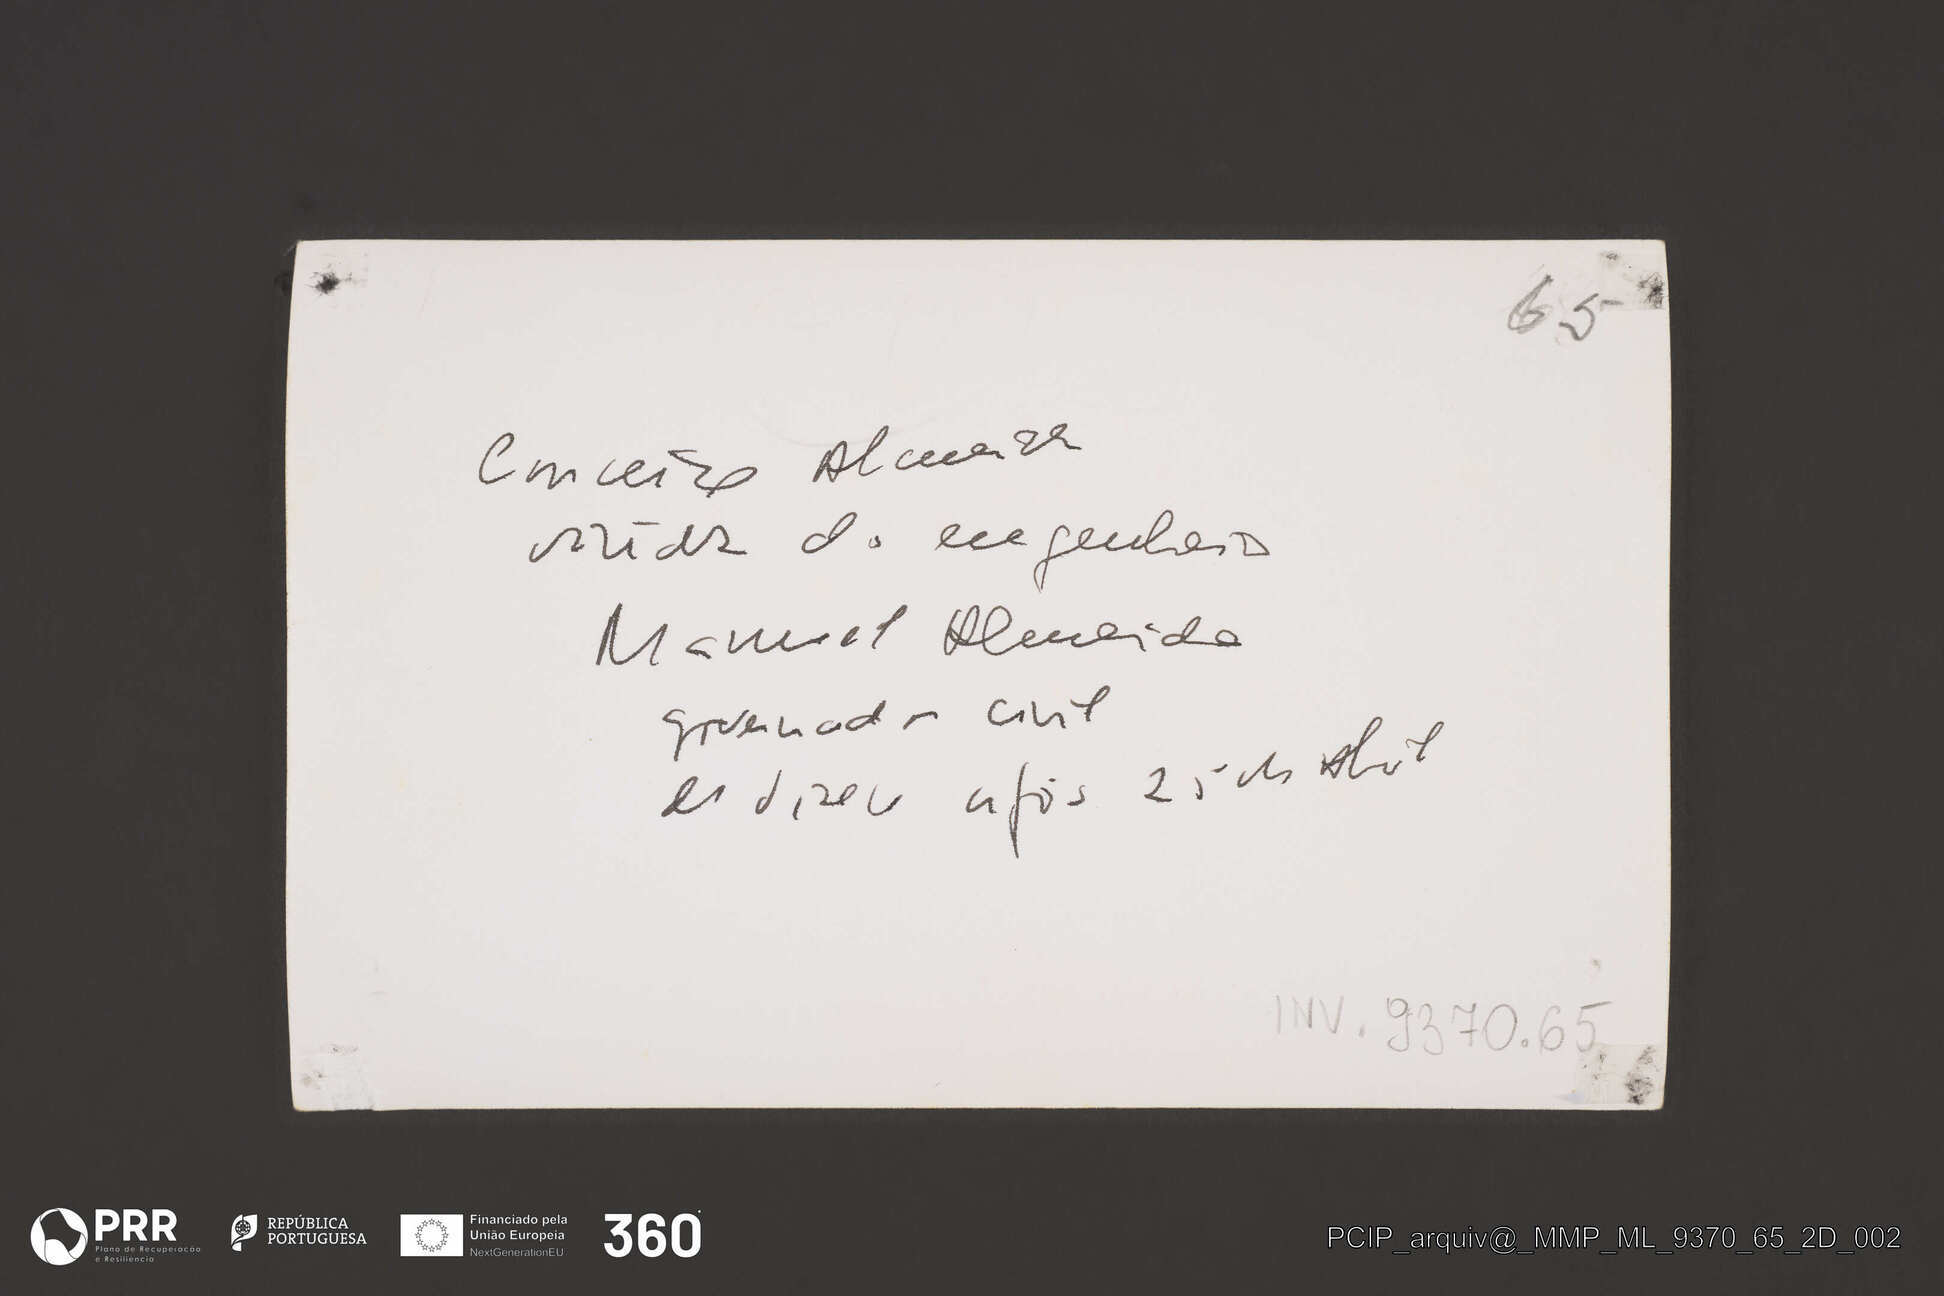 65
Conceição Almeida
viúva do engenheiro
Manuel Almeida
governador civil
de Vizeu após 25 de Abril
INV. 9370.65
PRR
Plano de Recuperação
e Resiliência
REPÚBLICA
PORTUGUESA
Financiado pela
União Europeia
NextGenerationEU
360
PCIP_arquiv@_MMP_ML_9370_65_2D_002